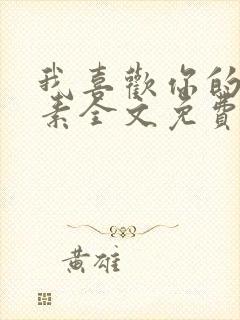 我喜歡你的
素全文免費
黃雄